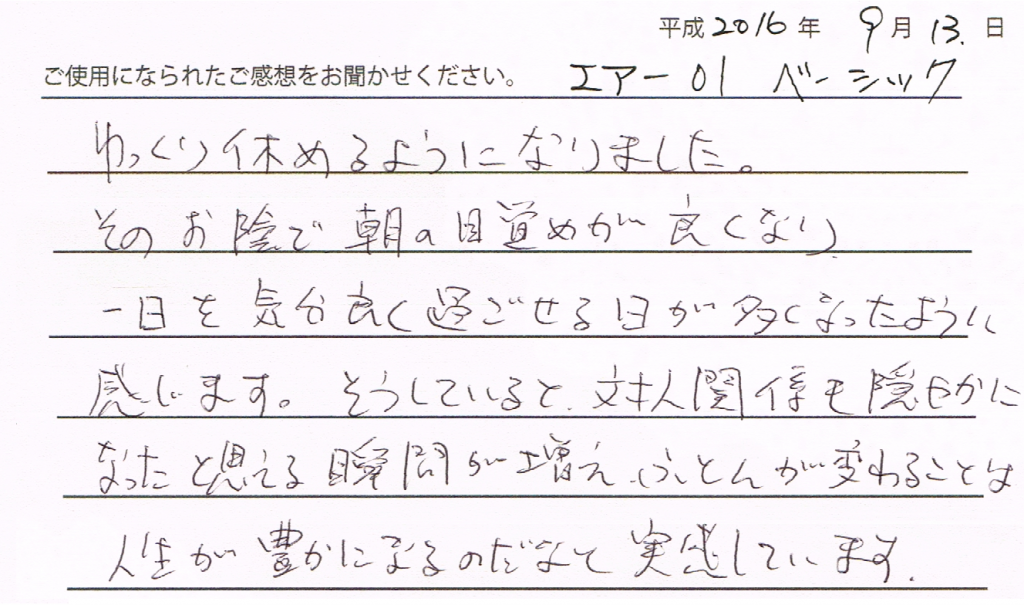 平成2016年 9月13.日
ご使用になられたご感想をお聞かせください。 エアー01 ベーシック
ゆっくり休めるようになりました。
そのお陰で朝の目覚めが良くなり、
一日を気分良く過ごせる日が多くなったように
感じます。そうしていると、対人関係も隠やかに
なったと思える瞬間が増え、ふとんが変わることは
人生が豊かになるのだなと実感しています.